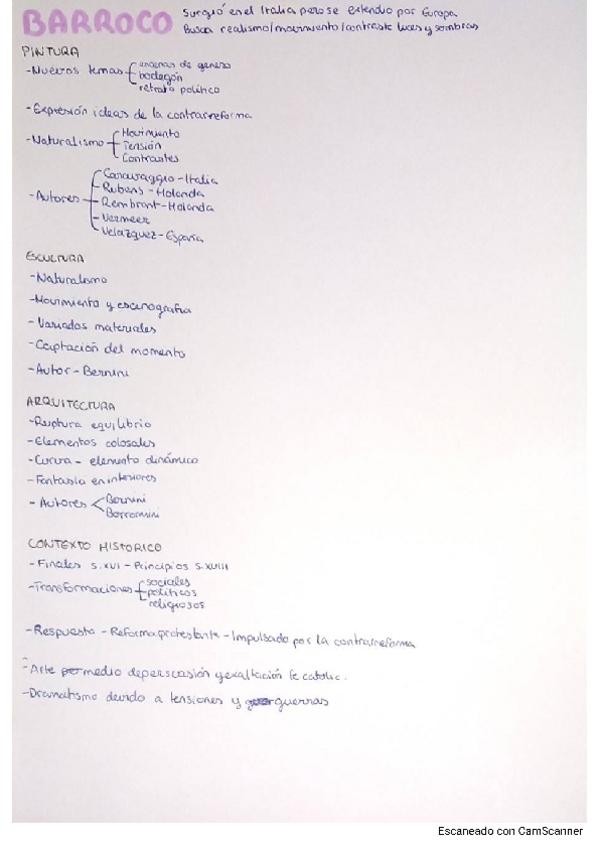 BARROCO
Surgió en el Italia pero se extendio por Europa.
Busca realismo/movimiento/contraste luces y sombras
PINTURA
-Nuevos temas
escenas de género
bodegón
retrato político
-Expresión ideas de la contrarreforma
-Naturalismo
Movimiento
Tensión
Contrastes
-Autores
Caravaggio-Italia
-Rubens-Holanda
-Rembrant-Holanda
-Vermeer
-Velázquez-España
ESCULTURA
-Naturalismo
-Movimiento y escenografia
-Variados materiales
-Captación del momento
-Autor-Bernini
ARQUITECTURA
-Ruptura equilibrio
-Elementos colosales
-Curva - elemento dinámico
-Fantasía en interiores
-Autores
Bernini
Borromini
CONTEXTO HISTORICO
-Finales s.XVI-Principios s.XVIII
-Transformaciones
sociales
políticos
religiosos
-Respuesta-Reforma protestante-Impulsado por la contrarreforma
-Arte por medio de persuasión y exaltación fe catolic.
-Dramatismo devido a tensiones y guerras
Escaneado con CamScanner